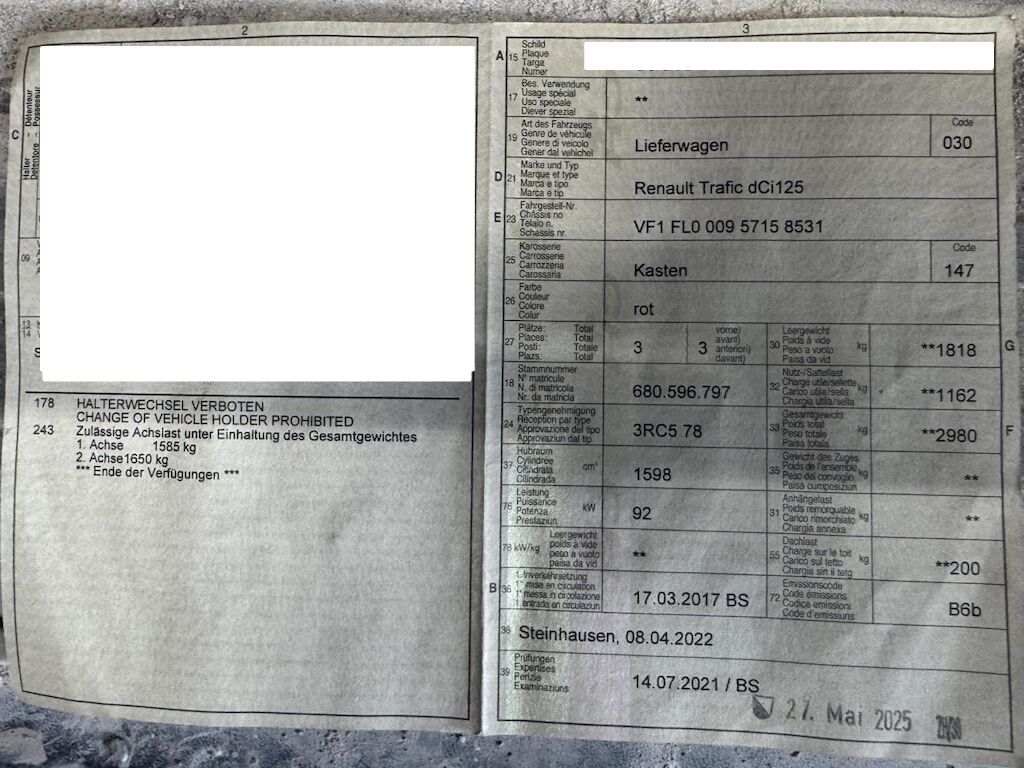 2
Halter
Détenteur
Detentore
Possessur
C
09
13
14
S
178 HALTERWECHSEL VERBOTEN
CHANGE OF VEHICLE HOLDER PROHIBITED
243 Zulässige Achslast unter Einhaltung des Gesamtgewichtes
1. Achse 1585 kg
2. Achse1650 kg
*** Ende der Verfügungen ***
3
A 15 Schild
Plaque
Targa
Numer
17 Bes. Verwendung
Usage spécial
Uso speciale
Diever spezial
**
19 Art des Fahrzeugs
Genre de véhicule
Genere di veicolo
Gener dal vehichel
Lieferwagen
Code
030
D 21 Marke und Typ
Marque et type
Marca e tipo
Marca e tip
Renault Trafic dCi125
E 23 Fahrgestell-Nr.
Châssis no
Telaio n.
Schassis nr.
VF1 FL0 009 5715 8531
25 Karosserie
Carrosserie
Carrozzeria
Carossaria
Kasten
Code
147
26 Farbe
Couleur
Colore
Colur
rot
27 Plätze: Total
Places: Total
Posti: Totale
Plazs. Total
3
{ 3 vorne)
avant)
anteriori)
davant)
30 Leergewicht
Poids à vide
Peso a vuoto
Paisa da vid
kg
**1818
G
18 Stammnummer
N° matricule
N. di matricola
Nr. da matricla
680.596.797
32 Nutz-/Sattellast
Charge utile/sellette
Carico utile/sella
Chargia utila/sella
kg
**1162
24 Typengenehmigung
Réception par type
Approvazione del tipo
Approvaziun dal tip
3RC5 78
33 Gesamtgewicht
Poids total
Peso totale
Paisa totala
kg
**2980
F
37 Hubraum
Cylindrée
Cilindrata
Cilindrada
cm³
1598
35 Gewicht des Zuges
Poids de l'ensemble
Peso del convoglio
Paisa cumposiziun
kg
**
76 Leistung
Puissance
Potenza
Prestaziun
kW
92
31 Anhängelast
Poids remorquable
Carico rimorchiato
Chargia annexa
kg
**
78 kW/kg Leergewicht
poids à vide
peso a vuoto
paisa da vid
**
55 Dachlast
Charge sur le toit
Carico sul tetto
Chargia sin il tetg
kg
**200
B 36 1. Inverkehrsetzung
1re mise en circulation
1a messa in circolazione
1. entrada en circulaziun
17.03.2017 BS
72 Emissionscode
Code émissions
Codice emissioni
Code d'emissiuns
B6b
38 Steinhausen, 08.04.2022
39 Prüfungen
Expertises
Perizie
Examinaziuns
14.07.2021 / BS
27. Mai 2025